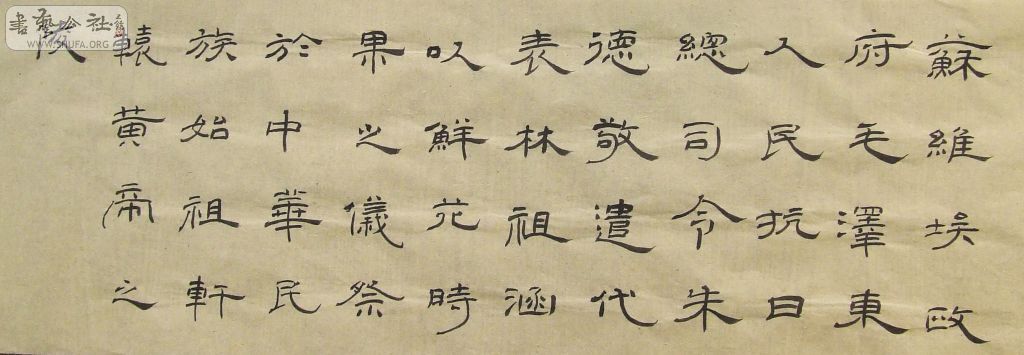 蘇維埃政
府毛澤東
人民抗日
總司令朱
德敬遣代
表林祖涵
以鮮花時
果之儀祭
於中華民
族始祖軒
轅黃帝之
書藝公社
WWW.SHUFA.ORG